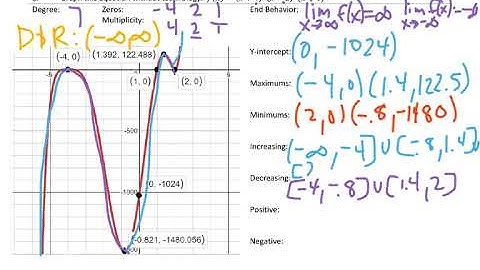 Degree: 7 Zeros: -4 2 1
Multiplicity: 4 2 1
End Behavior: lim x→∞ f(x)=∞ lim x→-∞ f(x)=-∞
D+R: (-∞,∞)
(1.392, 122.488)
(-4, 0)
(1, 0) (2, 0)
-5
-500
(0, -1024)
-1000
(-0.821, -1480.056)
Y-intercept: (0, -1024)
Maximums: (-4,0) (1.4,122.5)
Minimums: (2,0) (-.8,-1480)
Increasing: (-∞,-4]∪[-.8,1.4]∪
[2
Decreasing: [-4,-.8]∪[1.4,2]
Positive:
Negative: